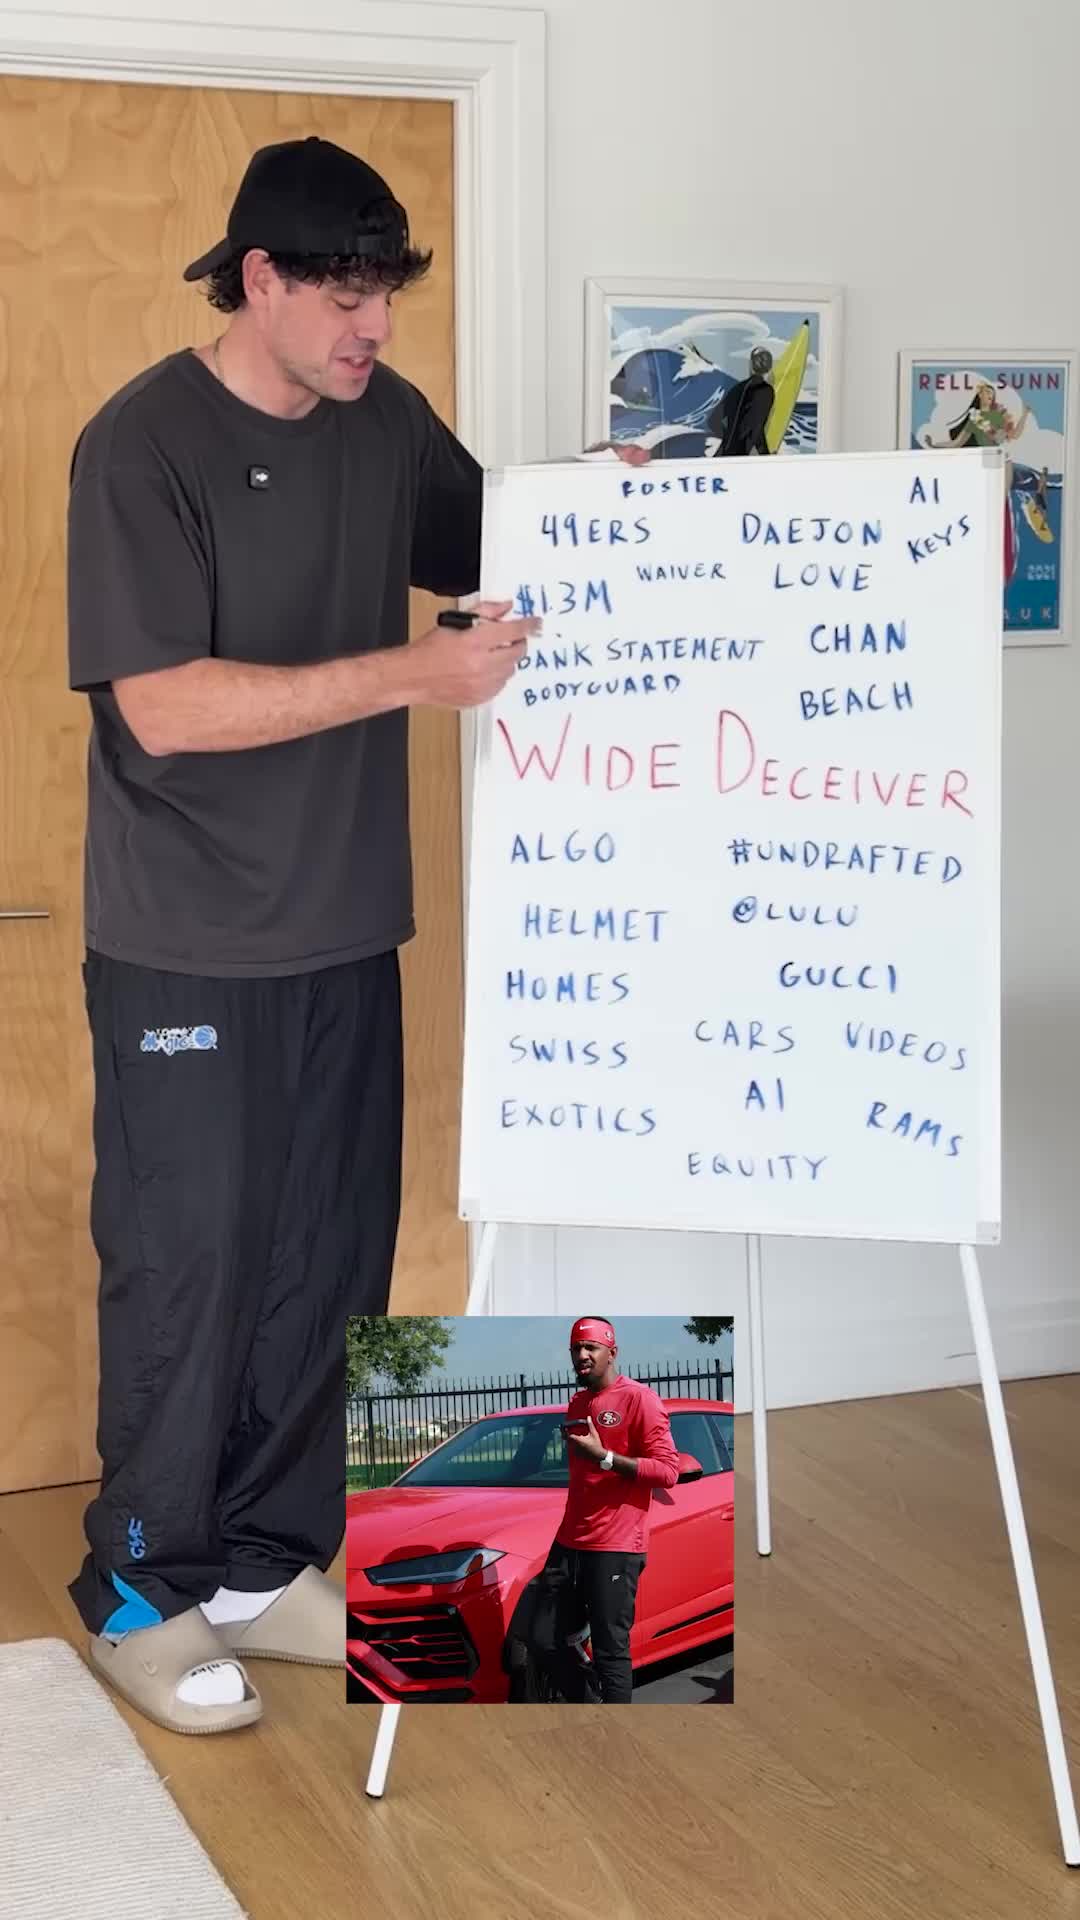 RELL SUNN
2021
AUK
ROSTER
AI
49ERS
DAEJON
KEYS
WAIVER
LOVE
$1.3M
CHAN
BANK STATEMENT
BODYGUARD
BEACH
WIDE DECEIVER
ALGO
#UNDRAFTED
HELMET
@LULU
HOMES
GUCCI
SWISS
CARS
VIDEOS
AI
EXOTICS
RAMS
EQUITY
Magic
SF